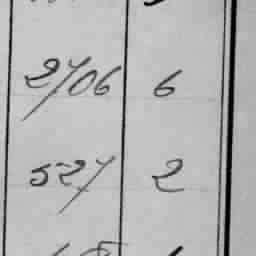 2706 6
527 2